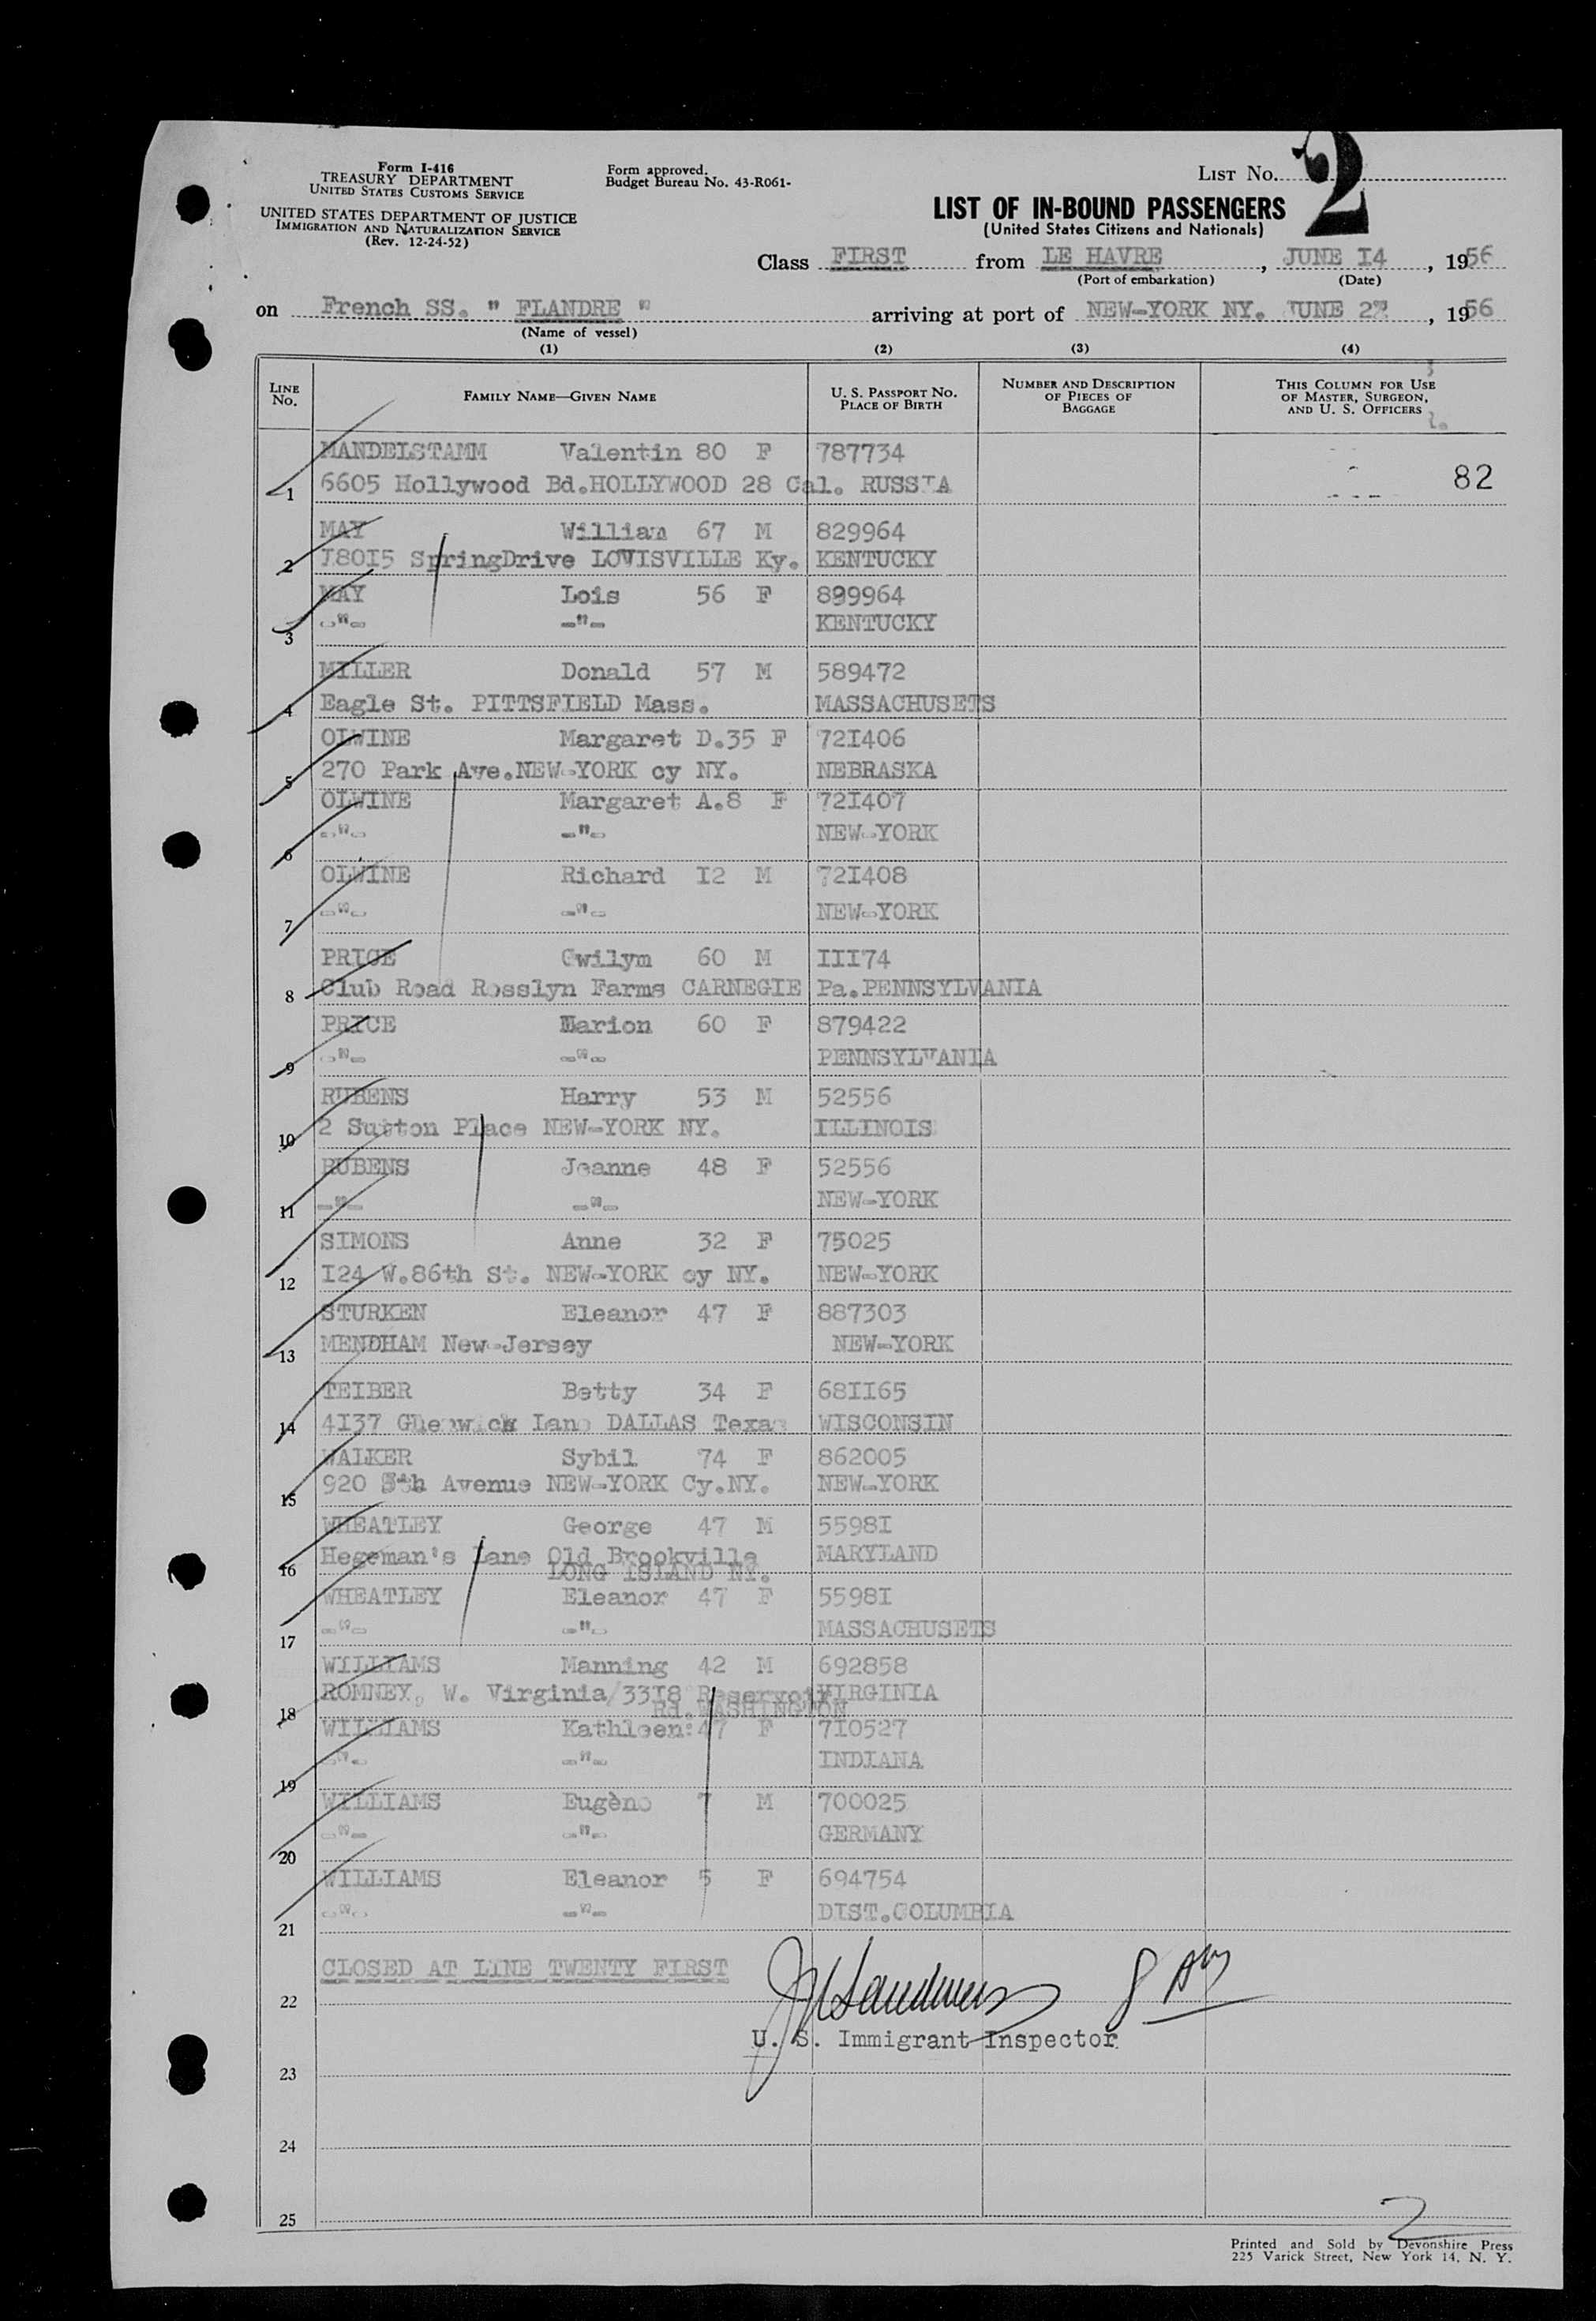 Form I-416
TREASURY DEPARTMENT
UNITED STATES CUSTOMS SERVICE
UNITED STATES DEPARTMENT OF JUSTICE
IMMIGRATION AND NATURALIZATION SERVICE
(Rev. 12-24-52)
Form approved.
Budget Bureau No. 43-R061-
LIST No. 2
LIST OF IN-BOUND PASSENGERS
(United States Citizens and Nationals)
Class FIRST from LE HAVRE, JUNE I4, 1956
(Port of embarkation) (Date)
on French SS. " FLANDRE " arriving at port of NEW-YORK NY. JUNE , 1956
(Name of vessel)
(1) (2) (3) (4)
LINE No. FAMILY NAME—GIVEN NAME U. S. PASSPORT No. PLACE OF BIRTH NUMBER AND DESCRIPTION OF PIECES OF BAGGAGE THIS COLUMN FOR USE OF MASTER, SURGEON, AND U. S. OFFICERS
MANDELSTAMM Valentin 80 F 787734
1 6605 Hollywood Bd.HOLLYWOOD 28 Cal. RUSSIA 82
MAY William 67 M 829964
2 I80I5 SpringDrive LOUISVILLE Ky. KENTUCKY
MAY Lois 56 F 899964
3 -"- -"- KENTUCKY
MILLER Donald 57 M 589472
4 Eagle St. PITTSFIELD Mass. MASSACHUSETS
OLWINE Margaret D.35 F 72I406
5 270 Park Ave.NEW-YORK cy NY. NEBRASKA
OLWINE Margaret A.8 F 72I407
6 -"- -"- NEW-YORK
OLWINE Richard I2 M 72I408
7 -"- -"- NEW-YORK
PRICE Gwilym 60 M III74
8 Club Road Rosslyn Farms CARNEGIE Pa.PENNSYLVANIA
PRICE Marion 60 F 879422
9 -"- -"- PENNSYLVANIA
RUBENS Harry 53 M 52556
10 2 Sutton Place NEW-YORK NY. ILLINOIS
RUBENS Jeanne 48 F 52556
11 -"- -"- NEW-YORK
SIMONS Anne 32 F 75025
12 I24 W.86th St. NEW-YORK cy NY. NEW-YORK
STURKEN Eleanor 47 F 887303
13 MENDHAM New-Jersey NEW-YORK
TEIBER Betty 34 F 68II65
14 4I37 Lane DALLAS Texas WISCONSIN
WALKER Sybil 74 F 862005
15 920 5th Avenue NEW-YORK Cy.NY. NEW-YORK
WHEATLEY George 47 M 5598I
16 Hegeman's Lane Old Brookville MARYLAND
LONG ISLAND NY.
WHEATLEY Eleanor 47 F 5598I
17 -"- -"- MASSACHUSETS
WILLIAMS Manning 42 M 692858
18 ROMNEY, W. Virginia/33I8 Reservoir VIRGINIA
Rd.WASHINGTON
WILLIAMS Kathleen:47 F 7I0527
19 -"- -"- INDIANA
WILLIAMS Eugène 7 M 700025
20 -"- -"- GERMANY
WILLIAMS Eleanor 5 F 694754
21 -"- -"- DIST.COLUMBIA
CLOSED AT LINE TWENTY FIRST
22
U. S. Immigrant Inspector
23
24
25
2
Printed and Sold by Devonshire Press
225 Varick Street, New York 14, N. Y.